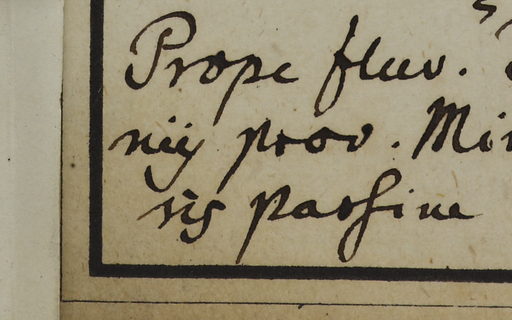 Prope fluv.
nij prov. Min
sis passim